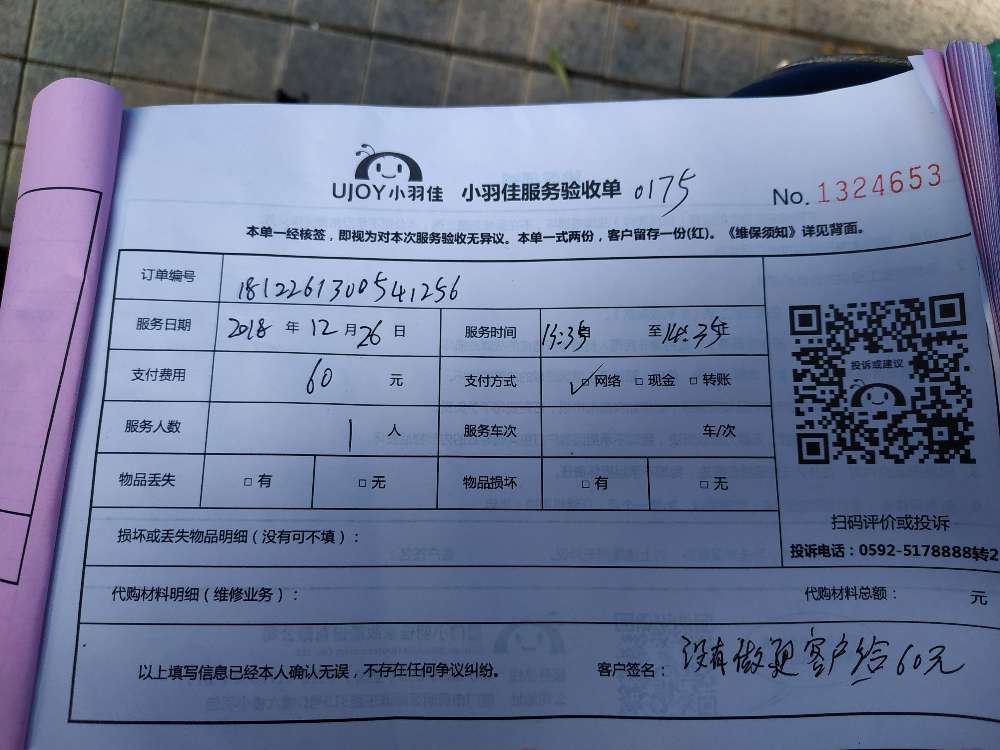 UJOY小羽佳 小羽佳服务验收单 0175
No. 1324653
本单一经核签，即视为对本次服务验收无异议。本单一式两份，客户留存一份(红)。《维保须知》详见背面。
订单编号 1812261300541256
服务日期 2018 年 12 月 26 日 服务时间 13:35 至 14:35
支付费用 60 元 支付方式 ✓□网络 □现金 □转账
服务人数 1 人 服务车次 车/次
物品丢失 □有 □无 物品损坏 □有 □无
投诉或建议
扫码评价或投诉
投诉电话：0592-5178888转2
损坏或丢失物品明细（没有可不填）：
代购材料明细（维修业务）： 代购材料总额： 元
以上填写信息已经本人确认无误，不存在任何争议纠纷。 客户签名： 没有做 客户给60元